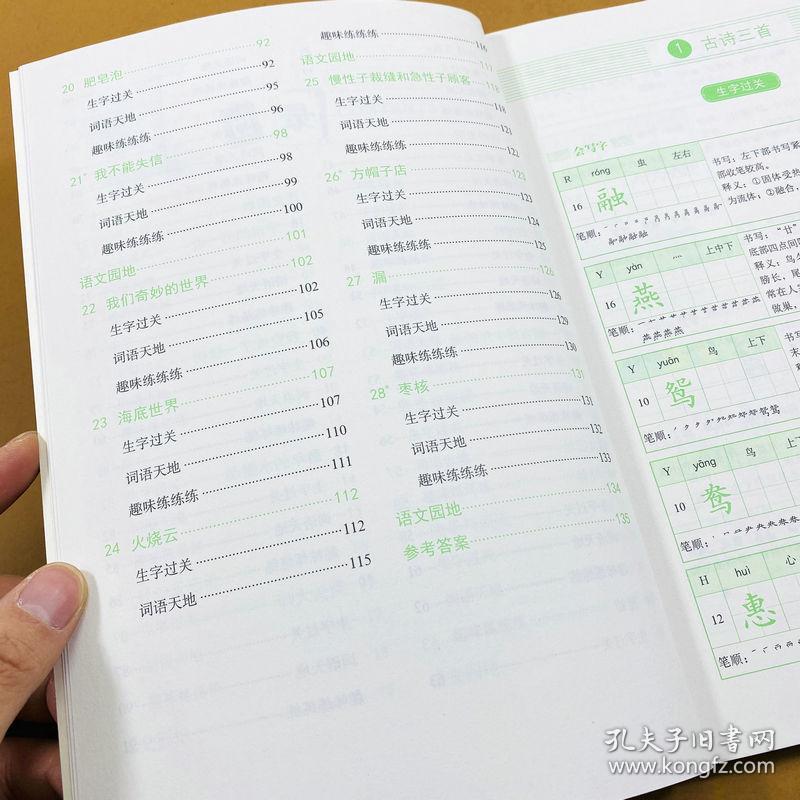 20 肥皂泡 92
生字过关 92
词语天地 95
趣味练练练 96
21* 我不能失信 98
生字过关 98
词语天地 99
趣味练练练 100
语文园地 101
22 我们奇妙的世界 102
生字过关 102
词语天地 105
趣味练练练 106
23 海底世界 107
生字过关 107
词语天地 110
趣味练练练 111
24 火烧云 112
生字过关 112
词语天地 115
趣味练练练 116
语文园地 117
25 慢性子裁缝和急性子顾客 118
生字过关 118
词语天地 121
趣味练练练 121
26* 方帽子店 123
生字过关 123
词语天地 124
趣味练练练 125
27 漏 126
生字过关 126
词语天地 129
趣味练练练 130
28* 枣核 131
生字过关 131
词语天地 132
趣味练练练 133
语文园地 134
参考答案 135
1 古诗三首
生字过关
会写字
R róng 虫 左右
16 融
书写：左下部书写紧
部收笔较高。
释义：①固体受热
为流体；②融合，
笔顺：
Y yàn 灬 上中下
16 燕
书写："廿"
底部四点间
释义：鸟
膀长，尾
常在人
做巢，
笔顺：
Y yuān 鸟 上下
10 鸳
书写
笔顺：
Y yāng 鸟 上
10 鸯
笔顺：
H huì 心
12 惠
笔顺：
孔夫子旧书网
www.kongfz.com